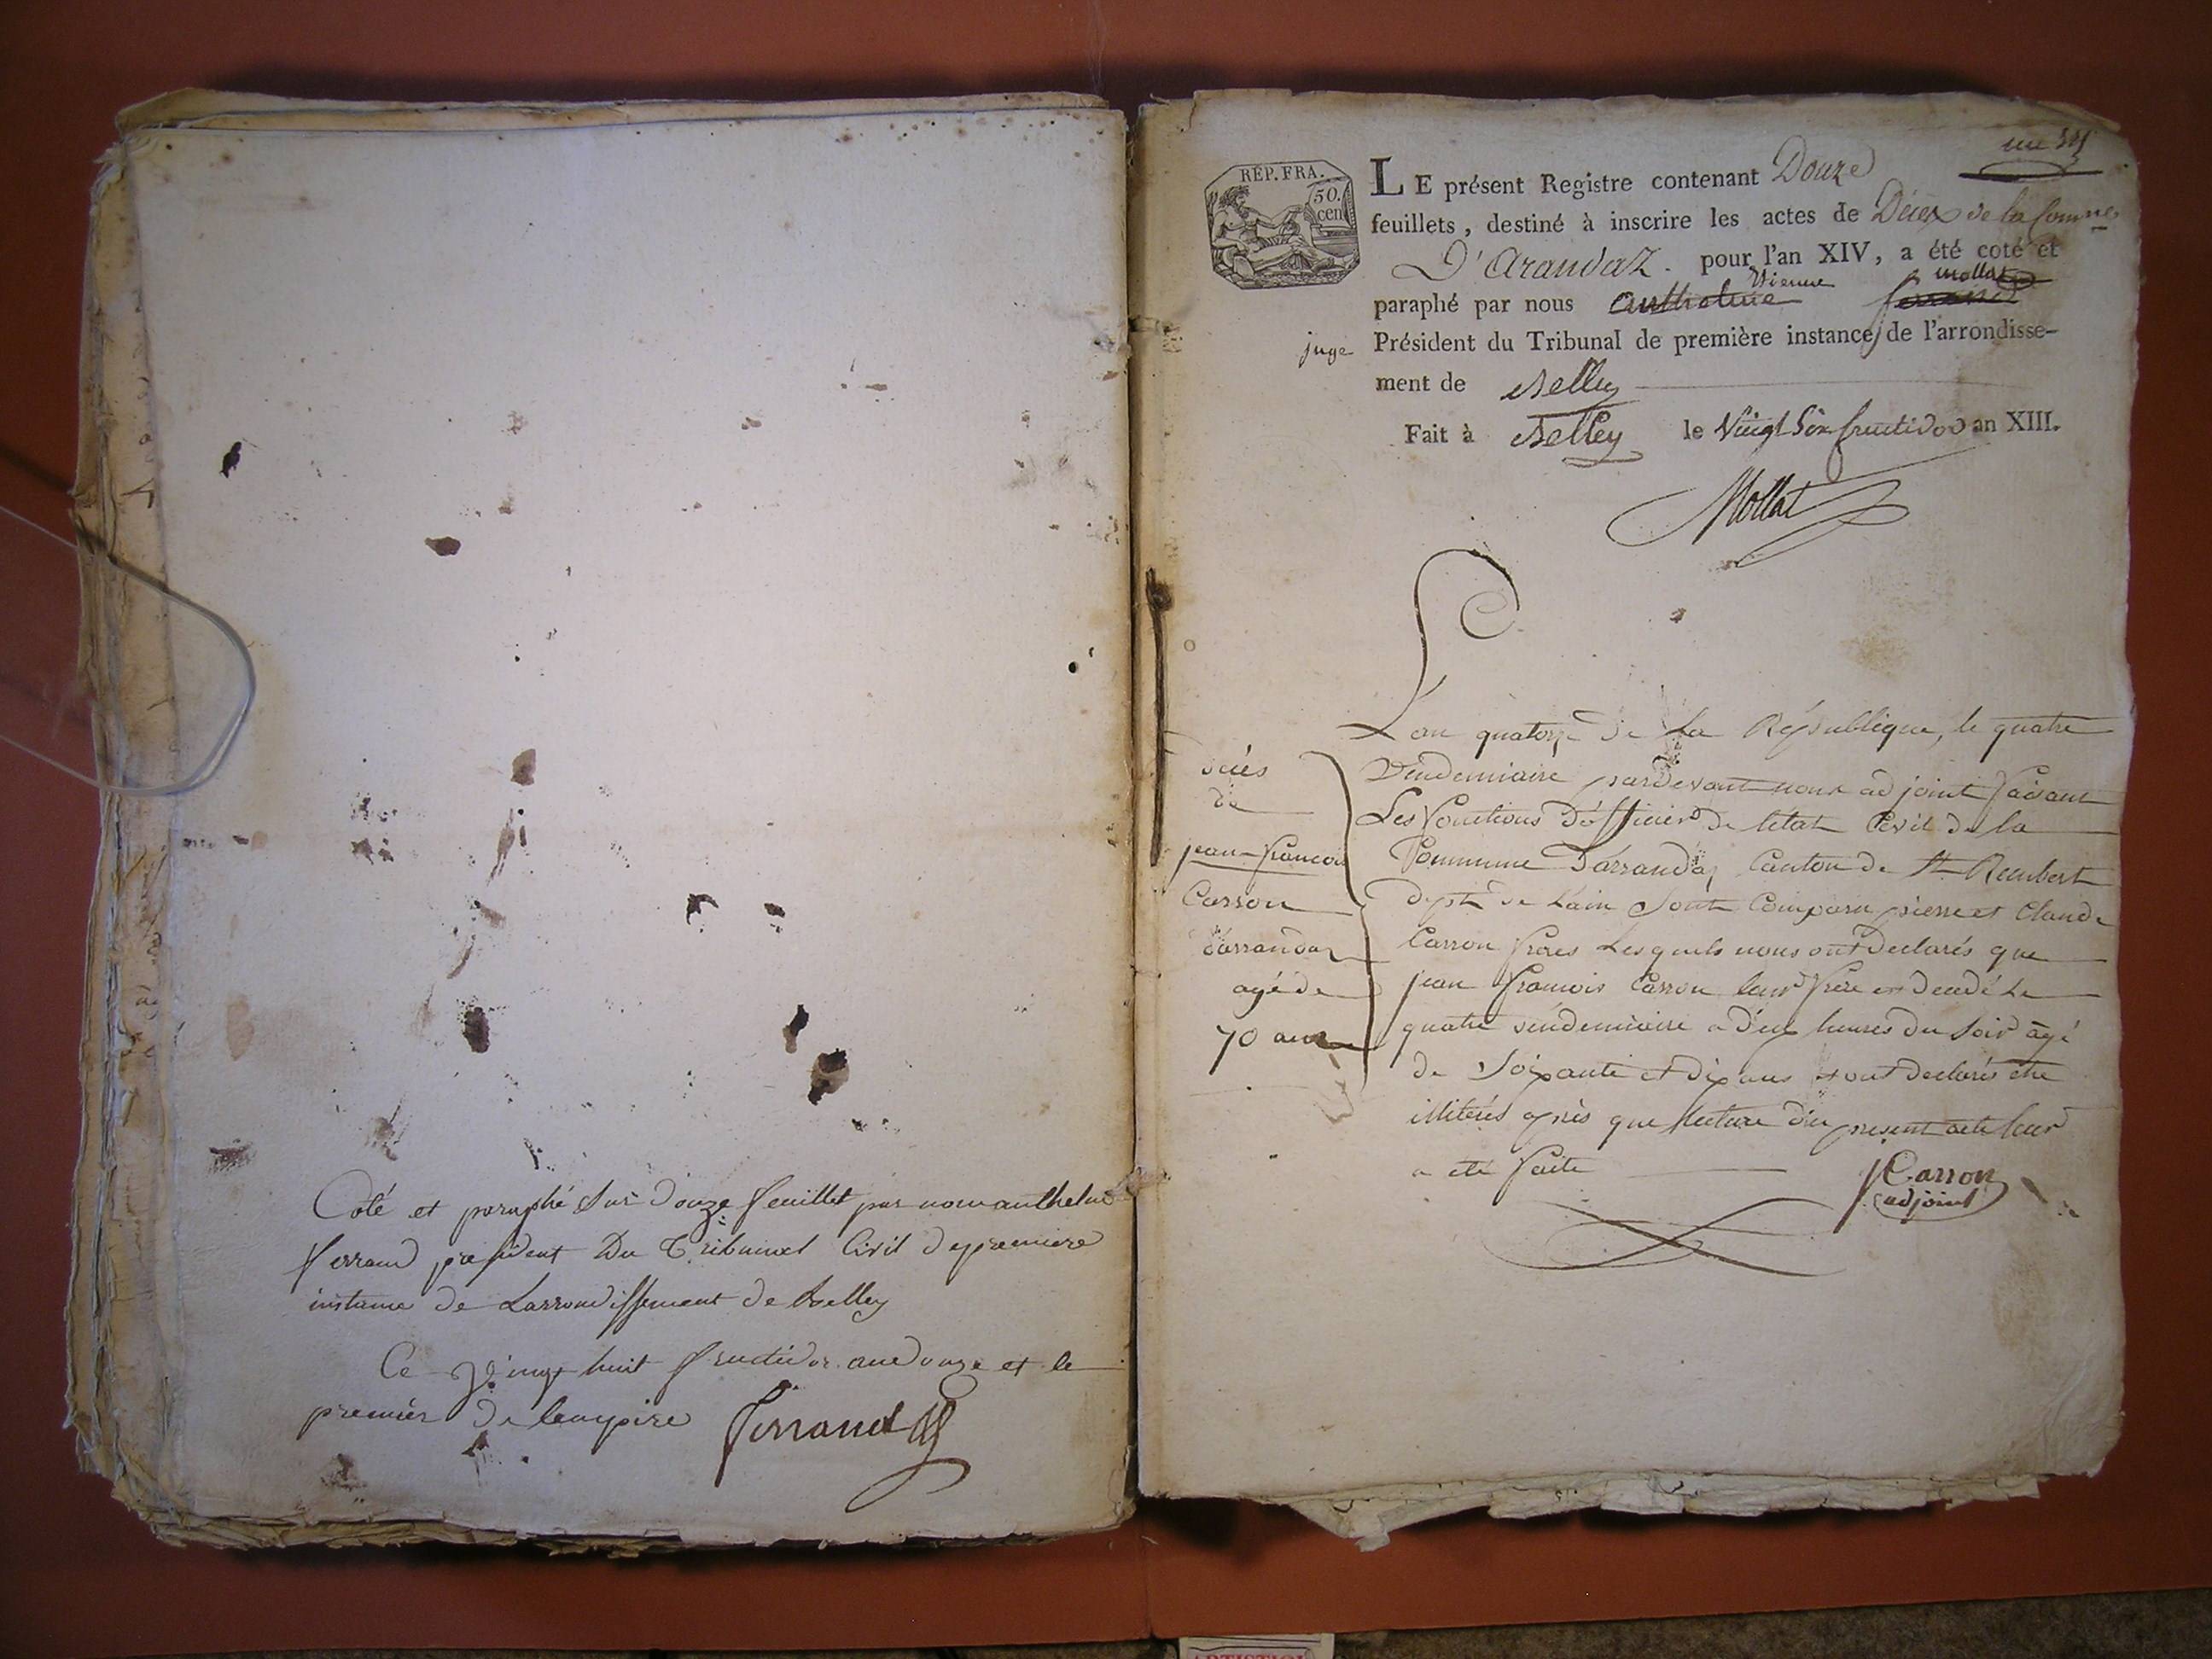 Coté et paraphé Sur douze feuillet par nous anthelme
ferrand president Du Tribunal Civil depremiere
instance de Larrondissement de belley
Ce vingt huit fructidor an douze et le
premier De lempire ferrand
RÉP. FRA.
50.
cen
LE présent Registre contenant Douze
feuillets, destiné à inscrire les actes de Décès de la Comne
D'Arandaz. pour l'an XIV, a été coté et
Mollat
paraphé par nous anthelme ferrand
juge
Président du Tribunal de première instance de l'arrondisse-
ment de Belley
Fait à Belley le Vingt Six fructidor an XIII.
Mollat
décès
de
jean-francois
Carron
darrandaz
agé de
70 ans
L'an quatorze de La République, le quatre
Vendemiaire pardevant nous adjoint faisant
Les fonctions D'officier de l'état Civil de la
Commune D'arrandaz Canton de St Rambert
Dept de Lain Sont Comparu pierre et Claude
Carron freres Lesquels nous ont Declarés que
jean francois Carron leur frere est decedé Le
quatre vendemiaire a Deux heures du Soir agé
de Soixante et dix ans et ont declarés etre
illiterés après que lecture du present acte leur
a eté faite
J Carron
adjoint